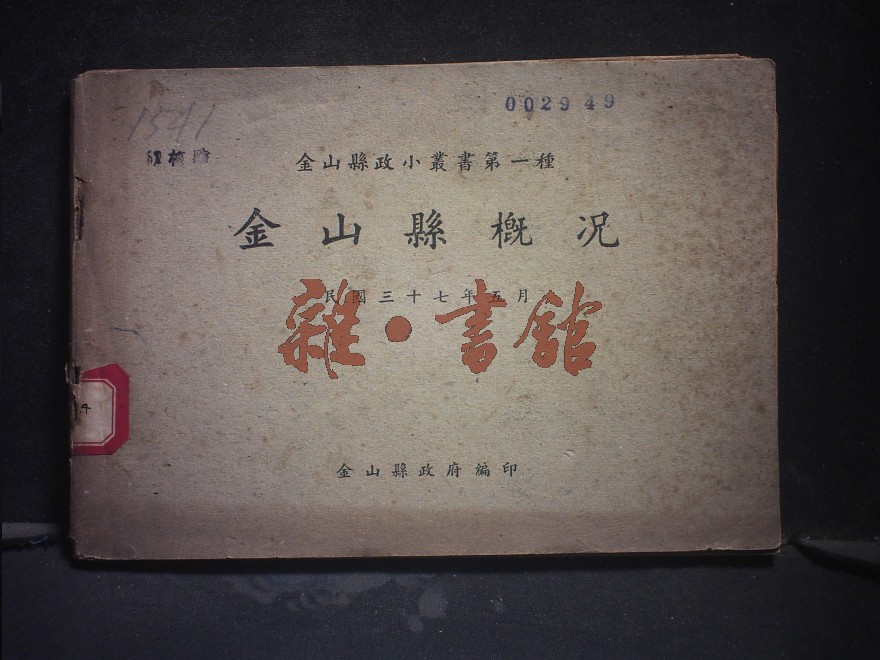 002949
1541
金山縣政小叢書第一種
金山縣概況
民國三十七年五月
雜·書館
金山縣政府編印